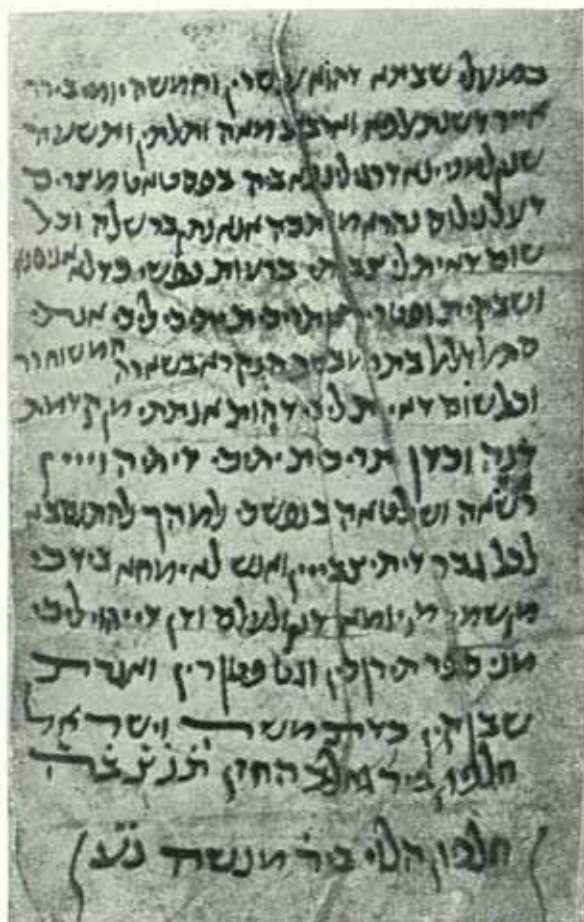 במעלי שבתא דהוא עשרין וחמשה יומי בירח
אייר דשנת אלפא וארבע מאה ותלתין ותשעה
שנין למנינא דרגילנא ביה בפסטאט מצרים
דעל נילוס נהרא מותבה אנא נתן בר שלה וכל
שום דאית לי צביתי ברעות נפשי כדלא אניסנא
ושבקית ופטרית ותריכית יתיכי ליכי אנתי
מבשר הנקרא בשארה המשוחרר
וכל שום דאית ליכי דהות אנתתי מן קדמת
דנה וכדן תריכית יתיכי דיתיהוייין
רשאה ושלטאה בנפשיכי למהך להתנסבא
לכל גבר דיתיצבייין ואנש לא ימחא בידיכי
מן שמי מן יומא דנן ולעלם ודן דייהוי ליכי
מני ספר תירוכין וגט פטורין ואגרת
שבוקין כדת משה וישראל
חלפון ביר החזן תנצבה
חלפון הלוי ביר מנשה נע